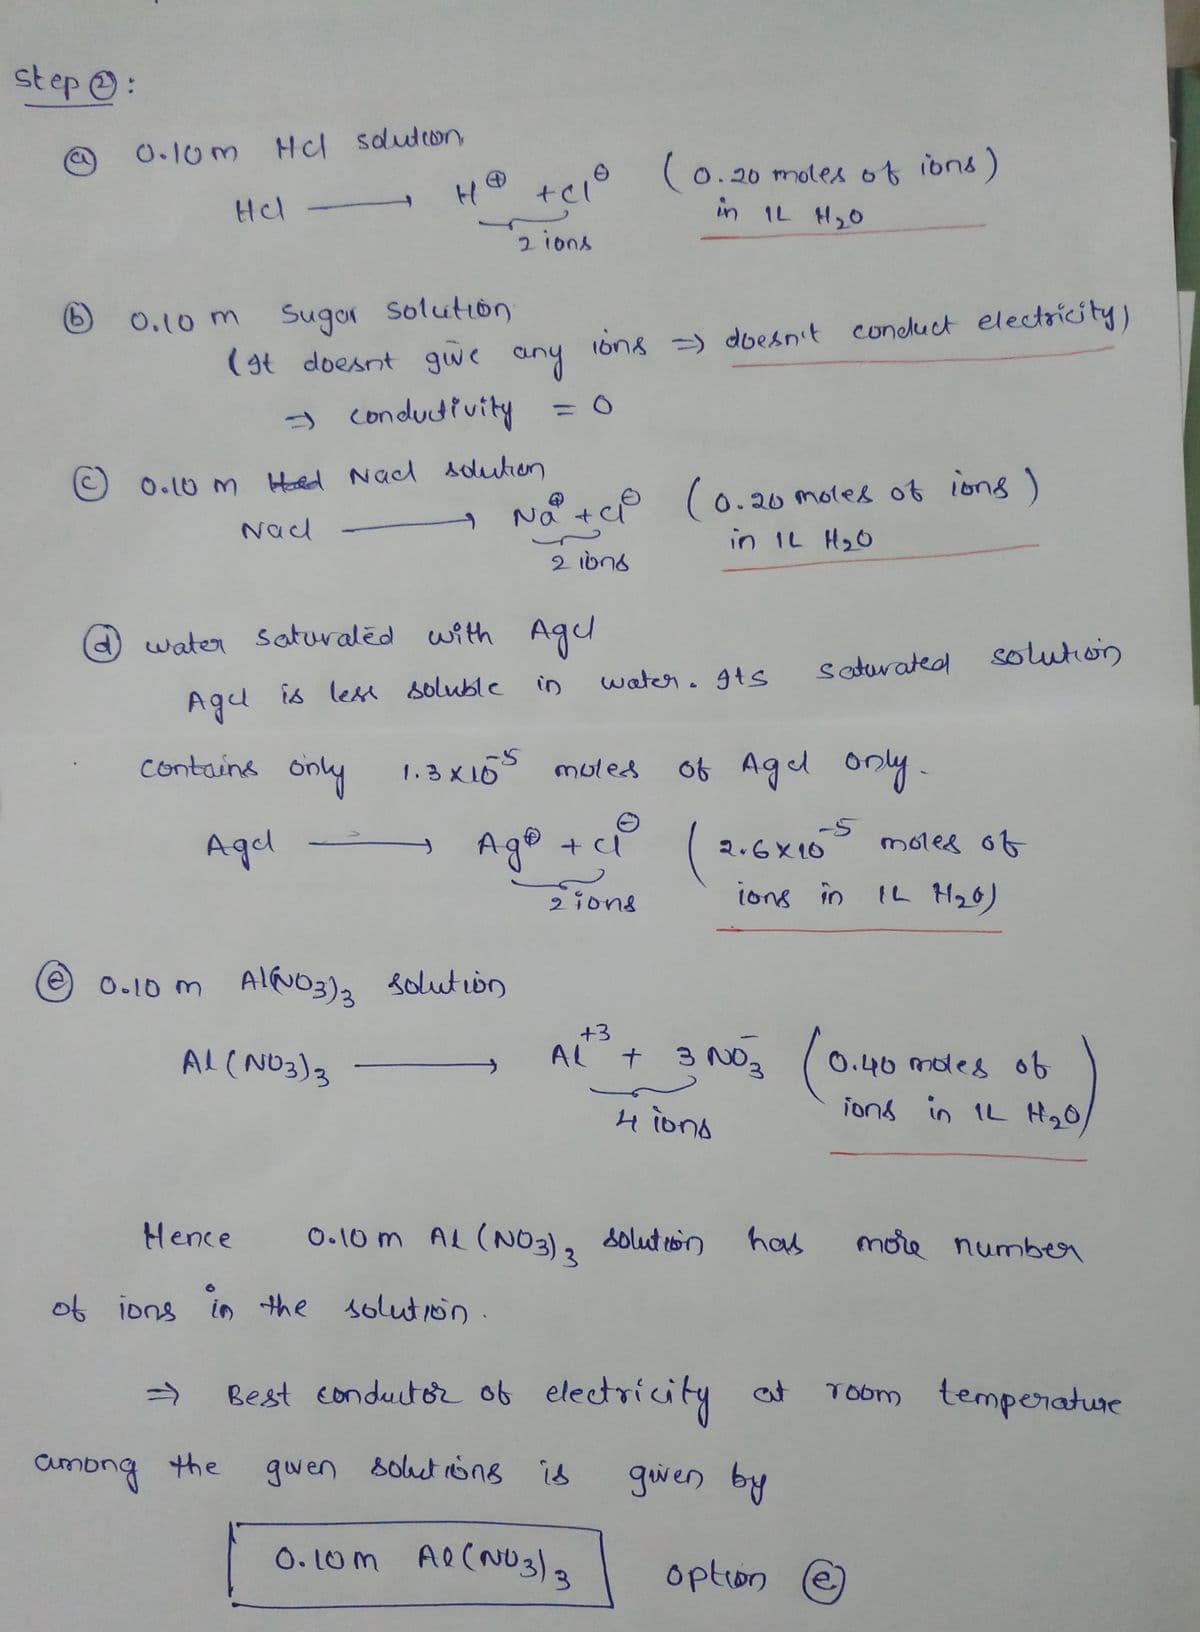 Step ②:
ⓐ 0.10m Hcl solution
Hcl ⟶ H⊕ + cl⊖ (0.20 moles of ions)
2 ions in 1L H₂O
ⓑ 0.10 m Sugar solution
(It doesnt give any ions ⇒ doesn't conduct electricity)
⇒ conductivity = 0
ⓒ 0.10 m Nacl solution
Nacl ⟶ Na⊕ + cl⊖ (0.20 moles of ions)
2 ions in 1L H₂O
ⓓ water saturated with Agcl
Agcl is less soluble in water. Its saturated solution
contains only 1.3 x 10⁻⁵ moles of Agcl only.
Agcl ⟶ Ag⊕ + cl⊖ (2.6 x 10⁻⁵ moles of
2 ions ions in 1L H₂O)
ⓔ 0.10 m Al(NO₃)₃ solution
Al(NO₃)₃ ⟶ Al⁺³ + 3 NO₃⁻ (0.40 moles of
4 ions ions in 1L H₂O)
Hence 0.10 m Al(NO₃)₃ solution has more number
of ions in the solution.
⇒ Best conductor of electricity at room temperature
among the given solutions is given by
0.10m Al(NO₃)₃ option ⓔ